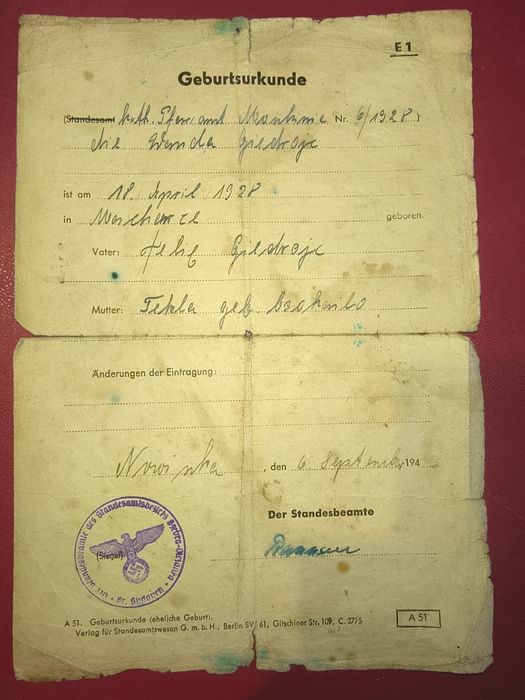 E 1
Geburtsurkunde
(Standesamt kath. Pfarramt Nr. 6/1928)
die Wanda Giedrojc
ist am 18. April 1928
in geboren.
Vater: Giedrojc
Mutter: Tekla geb.
Änderungen der Eintragung:
Nowinka, den 6. September 194
Der Standesbeamte
(Siegel)
A 51. Geburtsurkunde (eheliche Geburt).
Verlag für Standesamtswesen G. m. b. H., Berlin SW 61, Gitschiner Str. 109, C. 2775
A 51